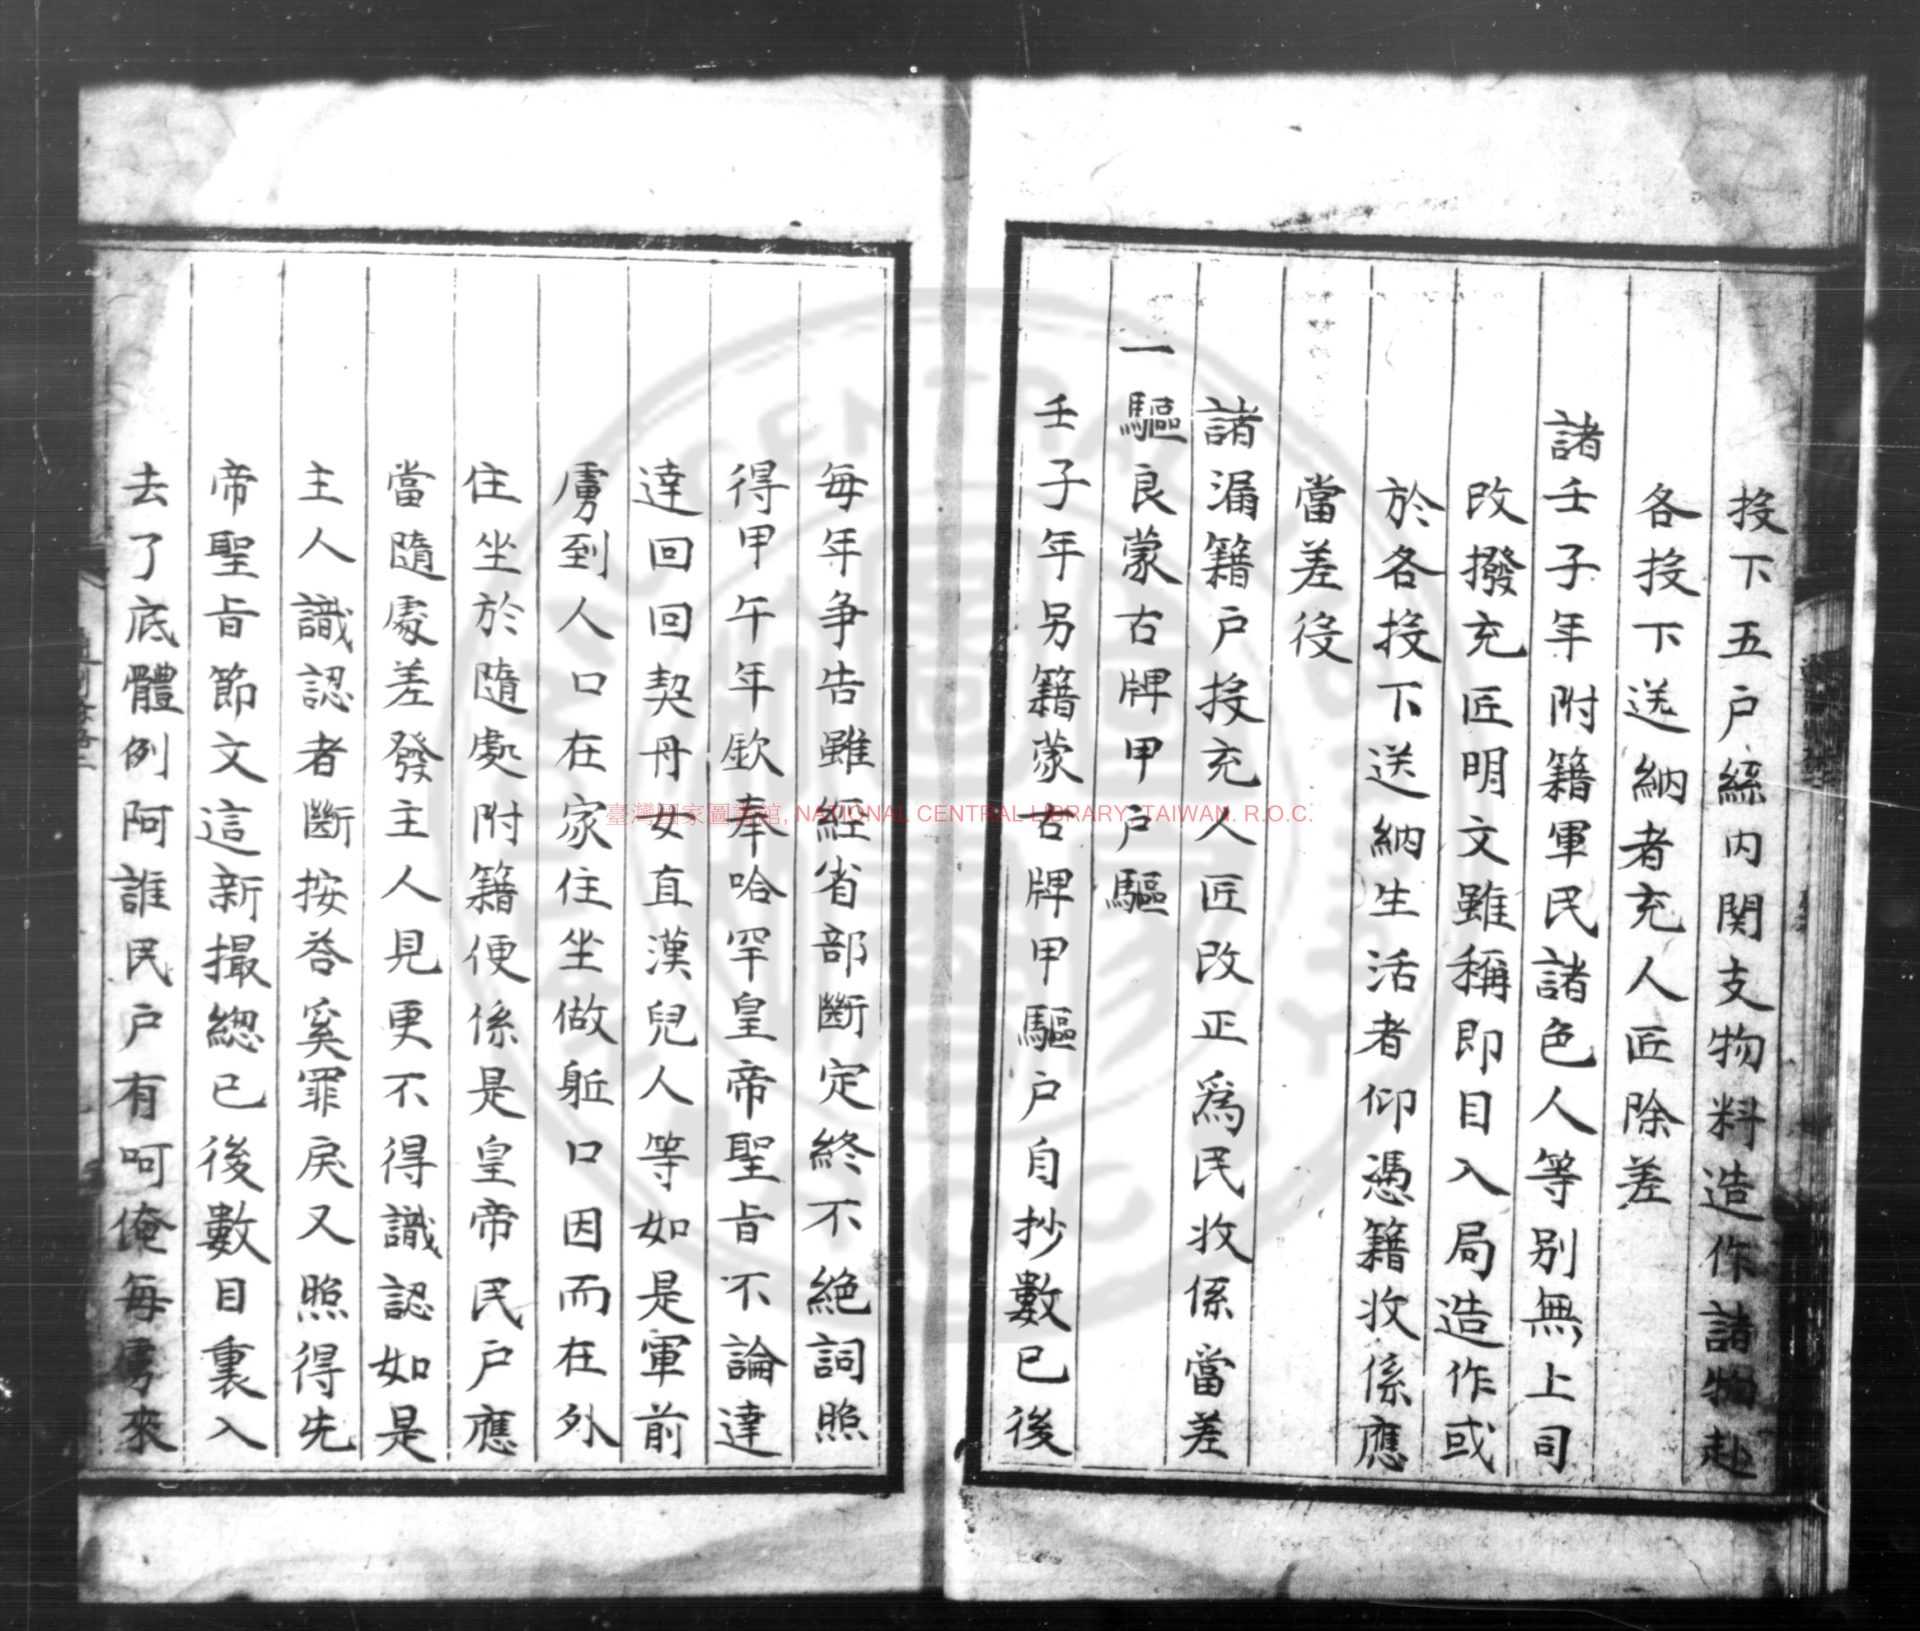 投下五户絲内関支物料造作諸物赴
各投下送納者充人匠除差
諸壬子年附籍軍民諸色人等别無上司
改撥充匠明文雖稱即目入局造作或
於各投下送納生活者仰憑籍收係應
當差役
諸漏籍户投充人匠改正爲民收係當差
一驅良蒙古牌甲户驅
壬子年另籍蒙古牌甲驅户自抄數已後
每年争告雖經省部斷定終不絶詞照
得甲午年欽奉哈罕皇帝聖旨不論達
達回回契丹女直漢兒人等如是軍前
虜到人口在家住坐做躯口因而在外
住坐於隨處附籍便係是皇帝民户應
當隨處差發主人見更不得識認如是
主人識認者斷按荅奚罪戾又照得先
帝聖旨節文這新撮緫已後數目裏入
去了底體例阿誰民户有呵俺每虜來
臺灣國家圖書館, NATIONAL CENTRAL LIBRARY, TAIWAN. R.O.C.